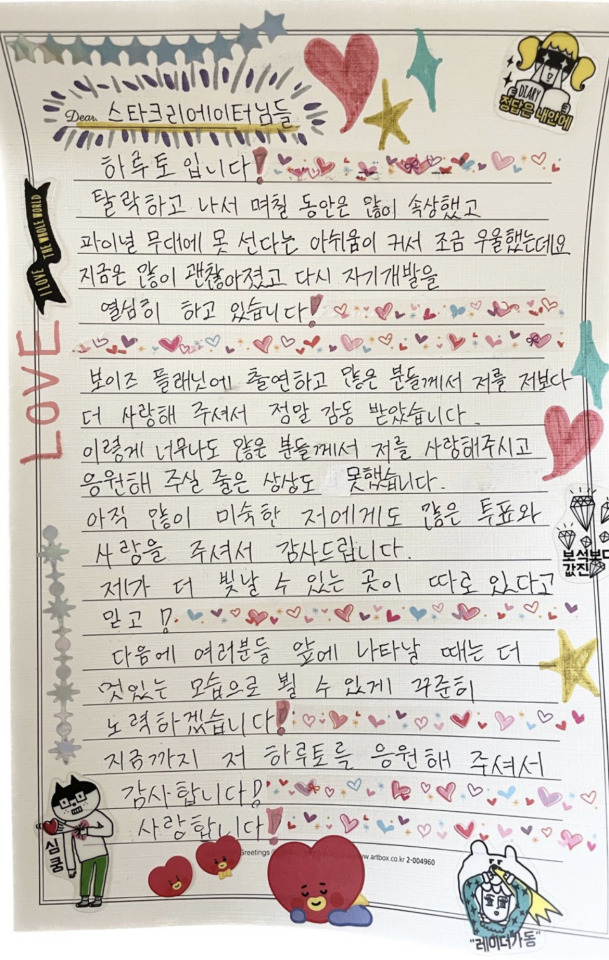 Dear. 스타크리에이터님들
DIARY
정답은 내안에
하루토입니다!
I LOVE THE WHOLE WORLD
탈락하고 나서 며칠 동안은 많이 속상했고
파이널 무대에 못 선다는 아쉬움이 커서 조금 우울했는데요
지금은 많이 괜찮아졌고 다시 자기개발을
열심히 하고 있습니다!
LOVE
보이즈 플래닛에 출연하고 많은 분들께서 저를 저보다
더 사랑해 주셔서 정말 감동 받았습니다.
이렇게 너무나도 많은 분들께서 저를 사랑해주시고
응원해 주실 줄은 상상도 못했습니다.
아직 많이 미숙한 저에게도 많은 투표와
사랑을 주셔서 감사드립니다.
보석보다
값진
제가 더 빛날 수 있는 곳이 따로 있다고
믿고!
다음에 여러분들 앞에 나타날 때는 더
멋있는 모습으로 뵐 수 있게 꾸준히
노력하겠습니다!
지금까지 저 하루토를 응원해 주셔서
감사합니다!
사랑합니다!
심쿵
Greetings
www.artbox.co.kr 2-004960
"레이더가동"